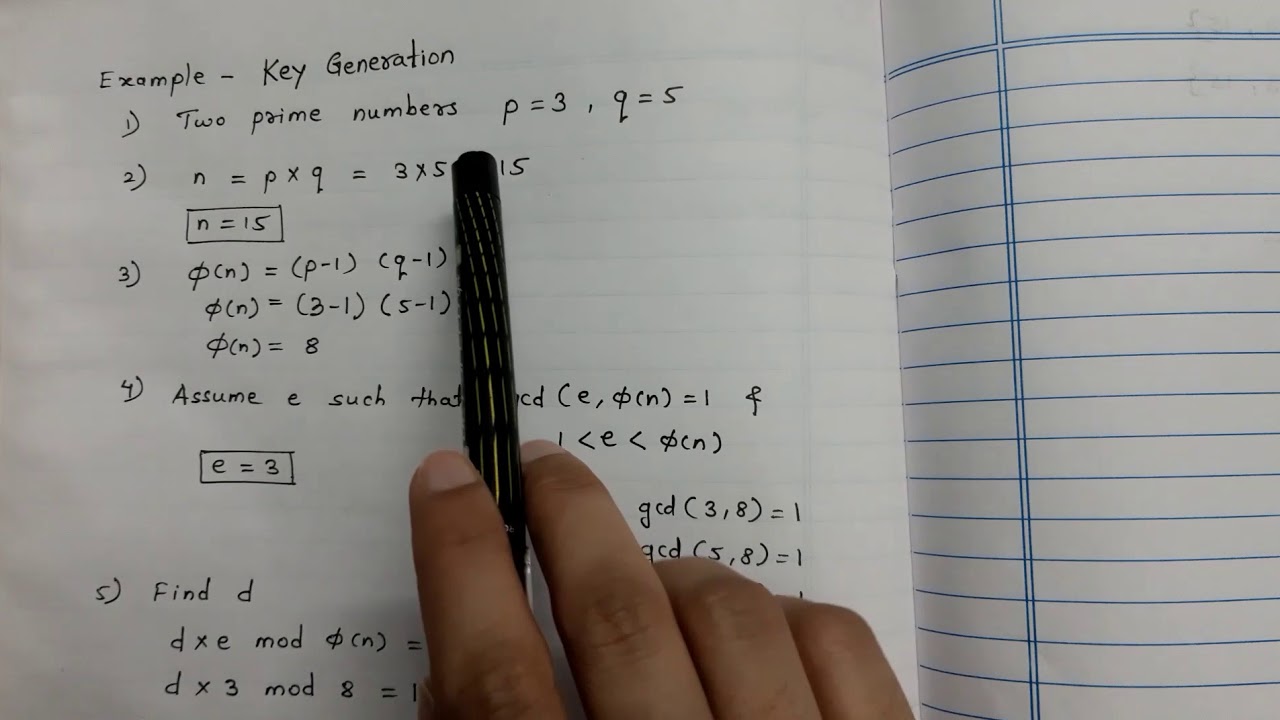 Example - Key Generation
1) Two prime numbers p = 3 , q = 5
2) n = p × q = 3 × 5 15
n = 15
3) ϕ(n) = (p-1) (q-1)
ϕ(n) = (3-1) (5-1)
ϕ(n) = 8
4) Assume e such that cd (e, ϕ(n) = 1 &
1 < e < ϕ(n)
e = 3
gcd (3, 8) = 1
gcd (5, 8) = 1
5) Find d
d × e mod ϕ(n) =
d × 3 mod 8 = 1